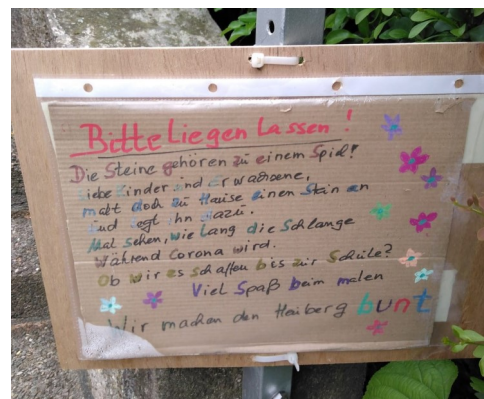 Bitte Liegen Lassen!
Die Steine gehören zu einem Spiel!
Liebe Kinder und Erwachsene,
malt doch zu Hause einen Stein an
und legt ihn dazu.
Mal sehen, wie lang die Schlange
während Corona wird.
Ob wir es schaffen bis zur Schule?
Viel Spaß beim malen
Wir machen den Heiberg bunt